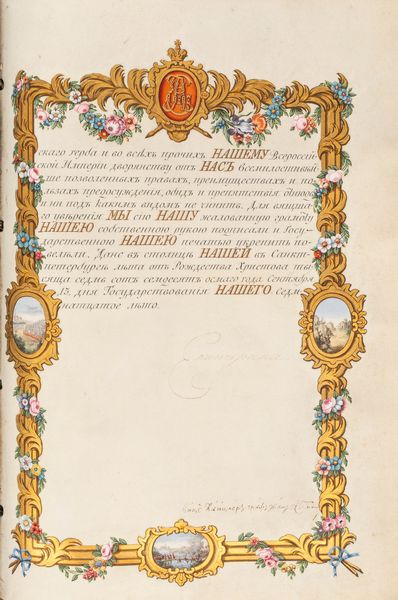 скаго герба и во всѣхъ прочихъ НАШЕМУ Всероссій
ской Имперіи дворянству отъ НАСЪ Всемилостивѣй
ше позволенныхъ правахъ, преимуществахъ и по
льзахъ предосужденія, обидъ и препятствія
и ни подъ какимъ видомъ не чинить. Для вящша
го увѣренія МЫ сію НАШУ жалованную грамоту
НАШЕЮ собственною рукою подписали и Госу
дарственною НАШЕЮ печатью укрепить по
велѣли. Дана въ столицѣ НАШЕЙ въ Санкт
петербургѣ лѣта отъ Рождества Христова ты
сяща седмь сотъ семдесятъ осмаго года Сентября
13, дня Государствованія НАШЕГО седм
надцатое лѣто.
Екатерина